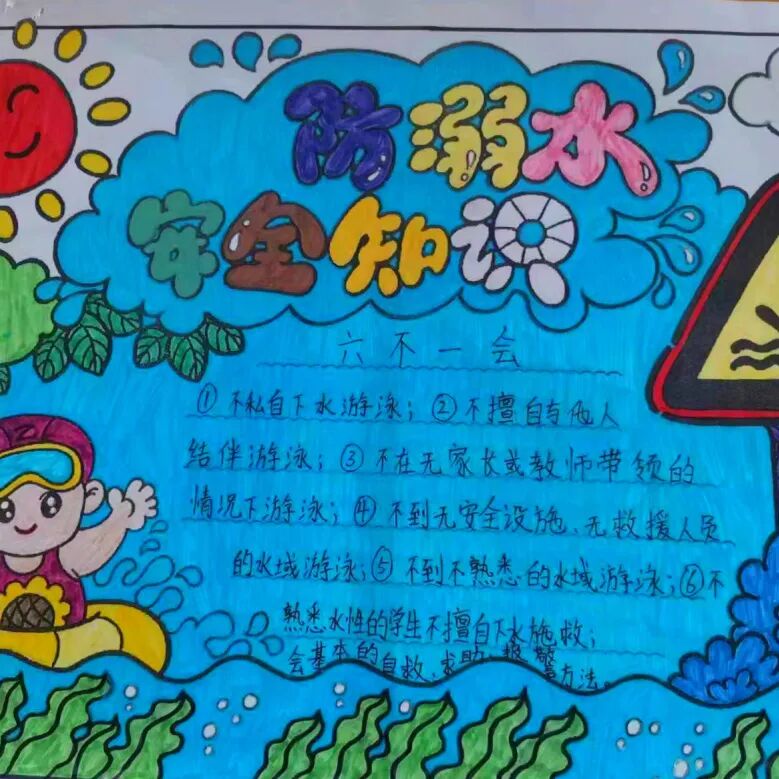 防溺水
安全知识
六不一会
①不私自下水游泳；②不擅自与他人
结伴游泳；③不在无家长或教师带领的
情况下游泳；④不到无安全设施、无救援人员
的水域游泳；⑤不到不熟悉的水域游泳；⑥不
熟悉水性的学生不擅自下水施救；
会基本的自救、求助、报警方法。